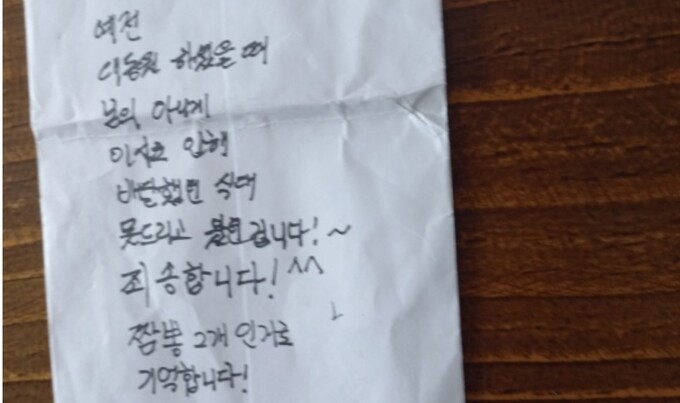 예전
하셨을 때
님의
이사로 인해
배달했던 식대
못드리고 겁니다!~
죄송합니다!^^
짬뽕 2개인거로
기억합니다!